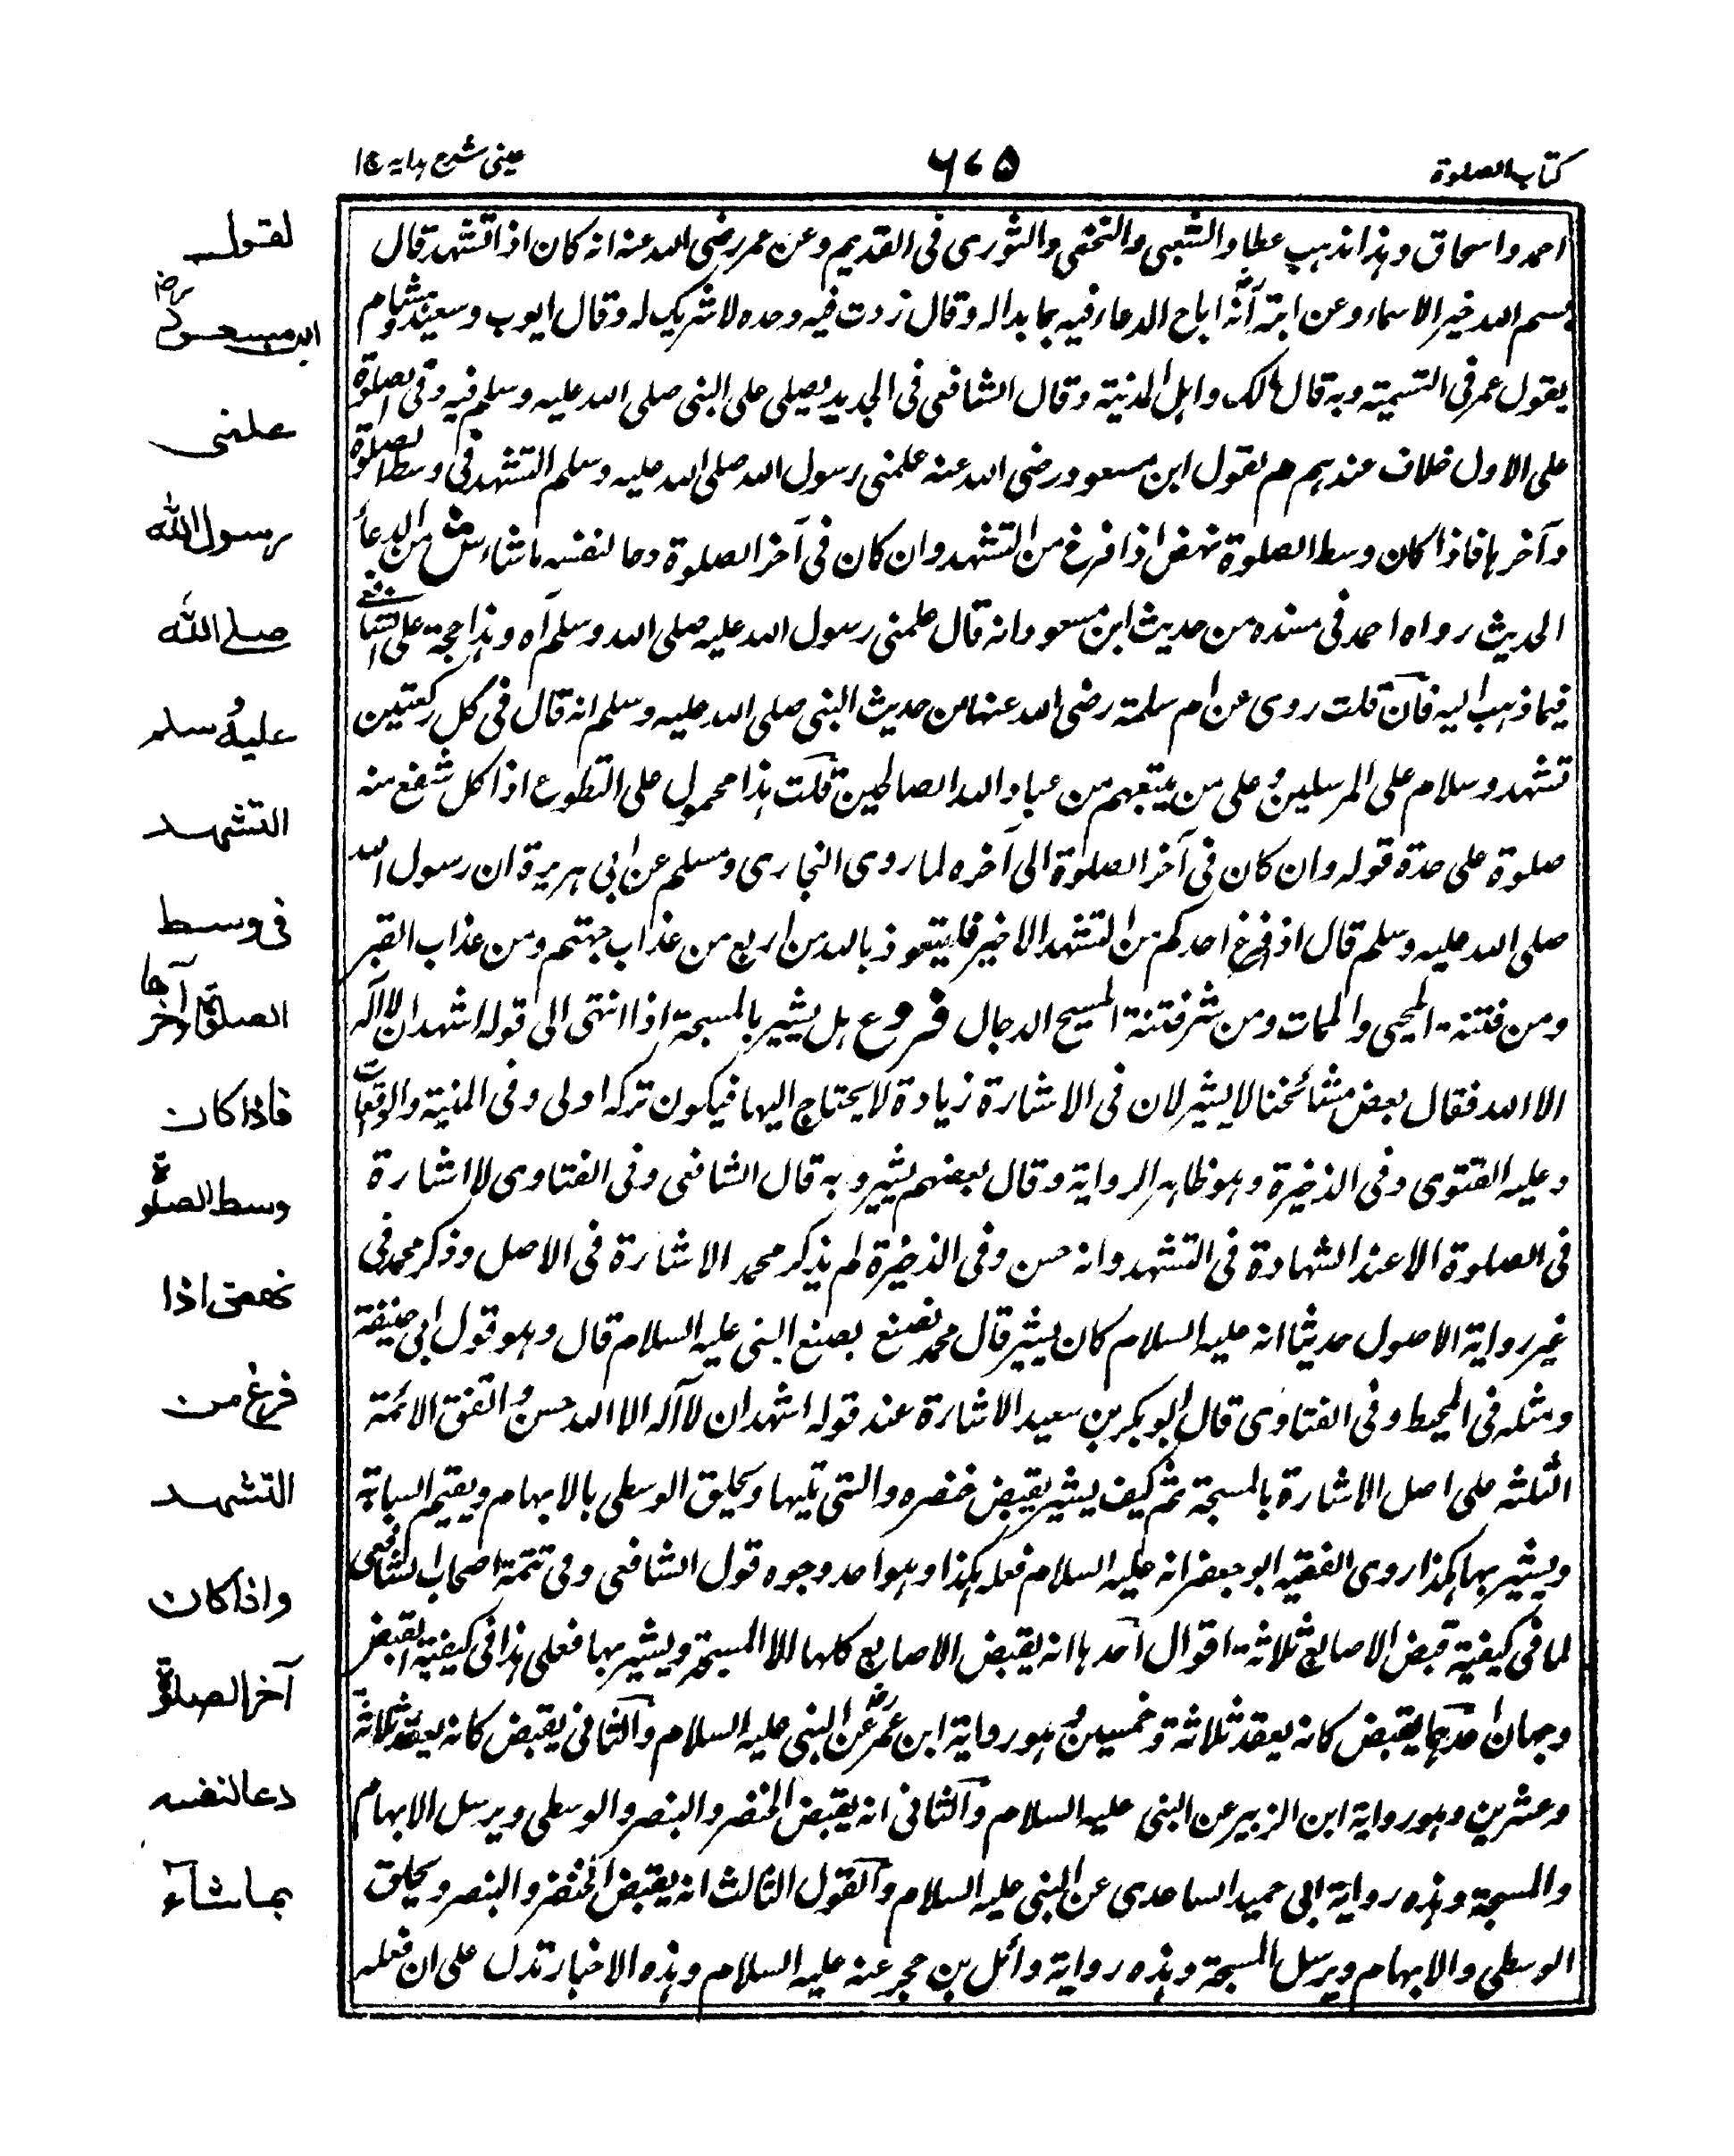 كتاب الصلوة
٦٧٥
عينى شرح هدايه ج ١
احمد واسحاق وهذا مذهب عطاء والشعبى والنخعى والثورى فى القديم وعن عمر رضى الله عنه انه كان اذا تشهد قال
بسم الله خير الاسماء وعن ابنه انه اباح الدعاء فيه بما بدا له وقال زدت فيه وحده لا شريك له وقال ايوب وسعيد وهشام
بقول عمر فى التسمية وبه قال مالك واهل المدنية وقال الشافعى فى الجديد يصلى على النبى صلى الله عليه وسلم فيه وفى الصلوة
على الاول خلاف عندهم م لقول ابن مسعود رضى الله عنه علمنى رسول الله صلى الله عليه وسلم التشهد فى وسط الصلوة
وآخرها فاذا كان وسط الصلوة نهض اذا فرغ من التشهد وان كان فى آخر الصلوة دعا لنفسه ما شاء ش من الدعاء
الحديث رواه احمد فى مسنده من حديث ابن مسعود انه قال علمنى رسول الله عليه صلى الله وسلم آه وهذا حجة على الشافعى
فيما ذهب اليه فان قلت روى عن ام سلمة رضى الله عنها من حديث النبى صلى الله عليه وسلم انه قال فى كل ركعتين
تشهد وسلام على المرسلين وعلى من يتبعهم من عباد الله الصالحين قلت هذا محمول على التطوع اذا كل شفع منه
صلوة على حدة قوله وان كان فى آخر الصلوة الى آخره لما روى البخارى ومسلم عن ابى هريرة ان رسول الله
صلى الله عليه وسلم قال اذا فرغ احدكم من التشهد الاخير فليتعوذ بالله من اربع من عذاب جهنم ومن عذاب القبر
ومن فتنة المحيى والممات ومن شر فتنة المسيح الدجال فروع هل يشير بالمسبحة اذا انتهى الى قوله اشهد ان لا اله
الا الله فقال بعض مشائخنا لا يشير لان فى الاشارة زيادة لا يحتاج اليها فيكون تركه اولى وفى المنية والواقعات
وعليه الفتوى وفى الذخيرة وهو ظاهر الرواية وقال بعضهم يشير وبه قال الشافعى وفى الفتاوى لا اشارة
فى الصلوة الا عند الشهادة فى التشهد وانه حسن وفى الذخيرة لم يذكر محمد الاشارة فى الاصل وذكر محمد فى
غير رواية الاصول حديثا انه عليه السلام كان يشير قال محمد نصنع بصنع النبى عليه السلام قال وهو قول ابى حنيفة
ومثله فى المحيط وفى الفتاوى قال ابو بكر بن سعيد الاشارة عند قوله اشهد ان لا آله الا الله حسن واتفق الائمة
الثلثه على اصل الاشارة بالمسبحة ثم كيف يشير يقبض خنصره والتى تليها ويحلق الوسطى بالابهام ويقيم السبابة
ويشير بها هكذا روى الفقيه ابو جعفر انه عليه السلام فعله هكذا وهو احد وجوه قول الشافعى وفى تتمة اصحاب الشافعى
لما فى كيفية قبض الاصابع ثلاثة اقوال احدها انه يقبض الاصابع كلها الا المسبحة ويشير بها فعلى هذا فى كيفية القبض
وجهان احدهما يقبض كانه يعقد ثلاثة وخمسين وهو رواية ابن عمر رض عن النبى عليه السلام والثانى يقبض كانه يعقد ثلاثة
وعشرين وهو رواية ابن الزبير عن النبى عليه السلام والثانى انه يقبض الخنصر والبنصر والوسطى ويرسل الابهام
والمسبحة وهذه رواية ابى حميد الساعدى عن النبى عليه السلام والقول الثالث انه يقبض الخنصر والبنصر ويحلق
الوسطى والابهام ويرسل المسبحة وهذه رواية وائل بن حجر عنه عليه السلام وهذه الاخبار تدل على ان فعله
لقول
ابن مسعود رض
علمنى
رسول الله
صلے الله
عليه وسلم
التشهد
فى وسط
الصلوة وآخرها
فاذا كان
وسط الصلوة
نهض اذا
فرغ من
التشهد
واذا كان
آخر الصلوة
دعا لنفسه
بما شآء